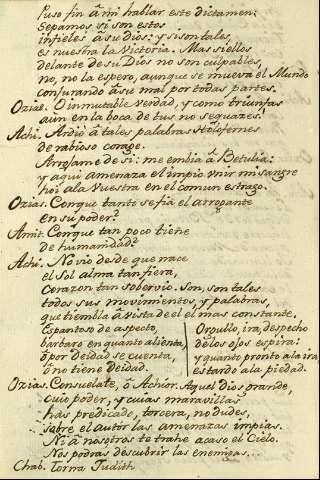 Puso fin â mi hablar este dictamen:
Sepamos, si son estos
infieles â su dios: y si son tales,
es nuestra la Victoria. Mas si ellos
delante de su Dios no son culpables,
no, no la espero, aunque se mueva el Mundo
conjurando â su mal por todas partes.
Ozias. O inmutable verdad, y como triunfas
aun en la boca de tus no sequazes!
Achi. Ardiò â tales palabras Holofernes
de rabioso corage.
Arrojame de si: me embia â Betulia:
y aqui amenaza el impio unir mi sangre
hoi â la Vuestra en el comun estrago.
Ozias. Conque tanto se fia el arrogante
en su poder?
Amit. Conque tan poco tiene
de humanidad?
Achi. No viò desde que nace
el Sol alma tan fiera,
corazon tan sobervio. Son, son tales
todos sus movimientos, y palabras,
que tiembla â vista de el el mas constante.
Espantoso de aspecto,
barbaro en quanto alienta,
ô por Deidad se cuenta,
ô no tiene Deidad.
Orgullo, ira, despecho
de los ojos espira:
y quanto pronto â la ira
es tardo â la piedad.
Ozias. Consuelate, ô Achior. Aquel Dios grande,
cuio poder, y cuias maravillas
has predicado, torcera, no dudes,
sobre el autor las amenazas impias.
Ni â nosotros te trahe acaso el Cielo.
Nos podras descubrir las enemigas...
Chab. Torna Judith